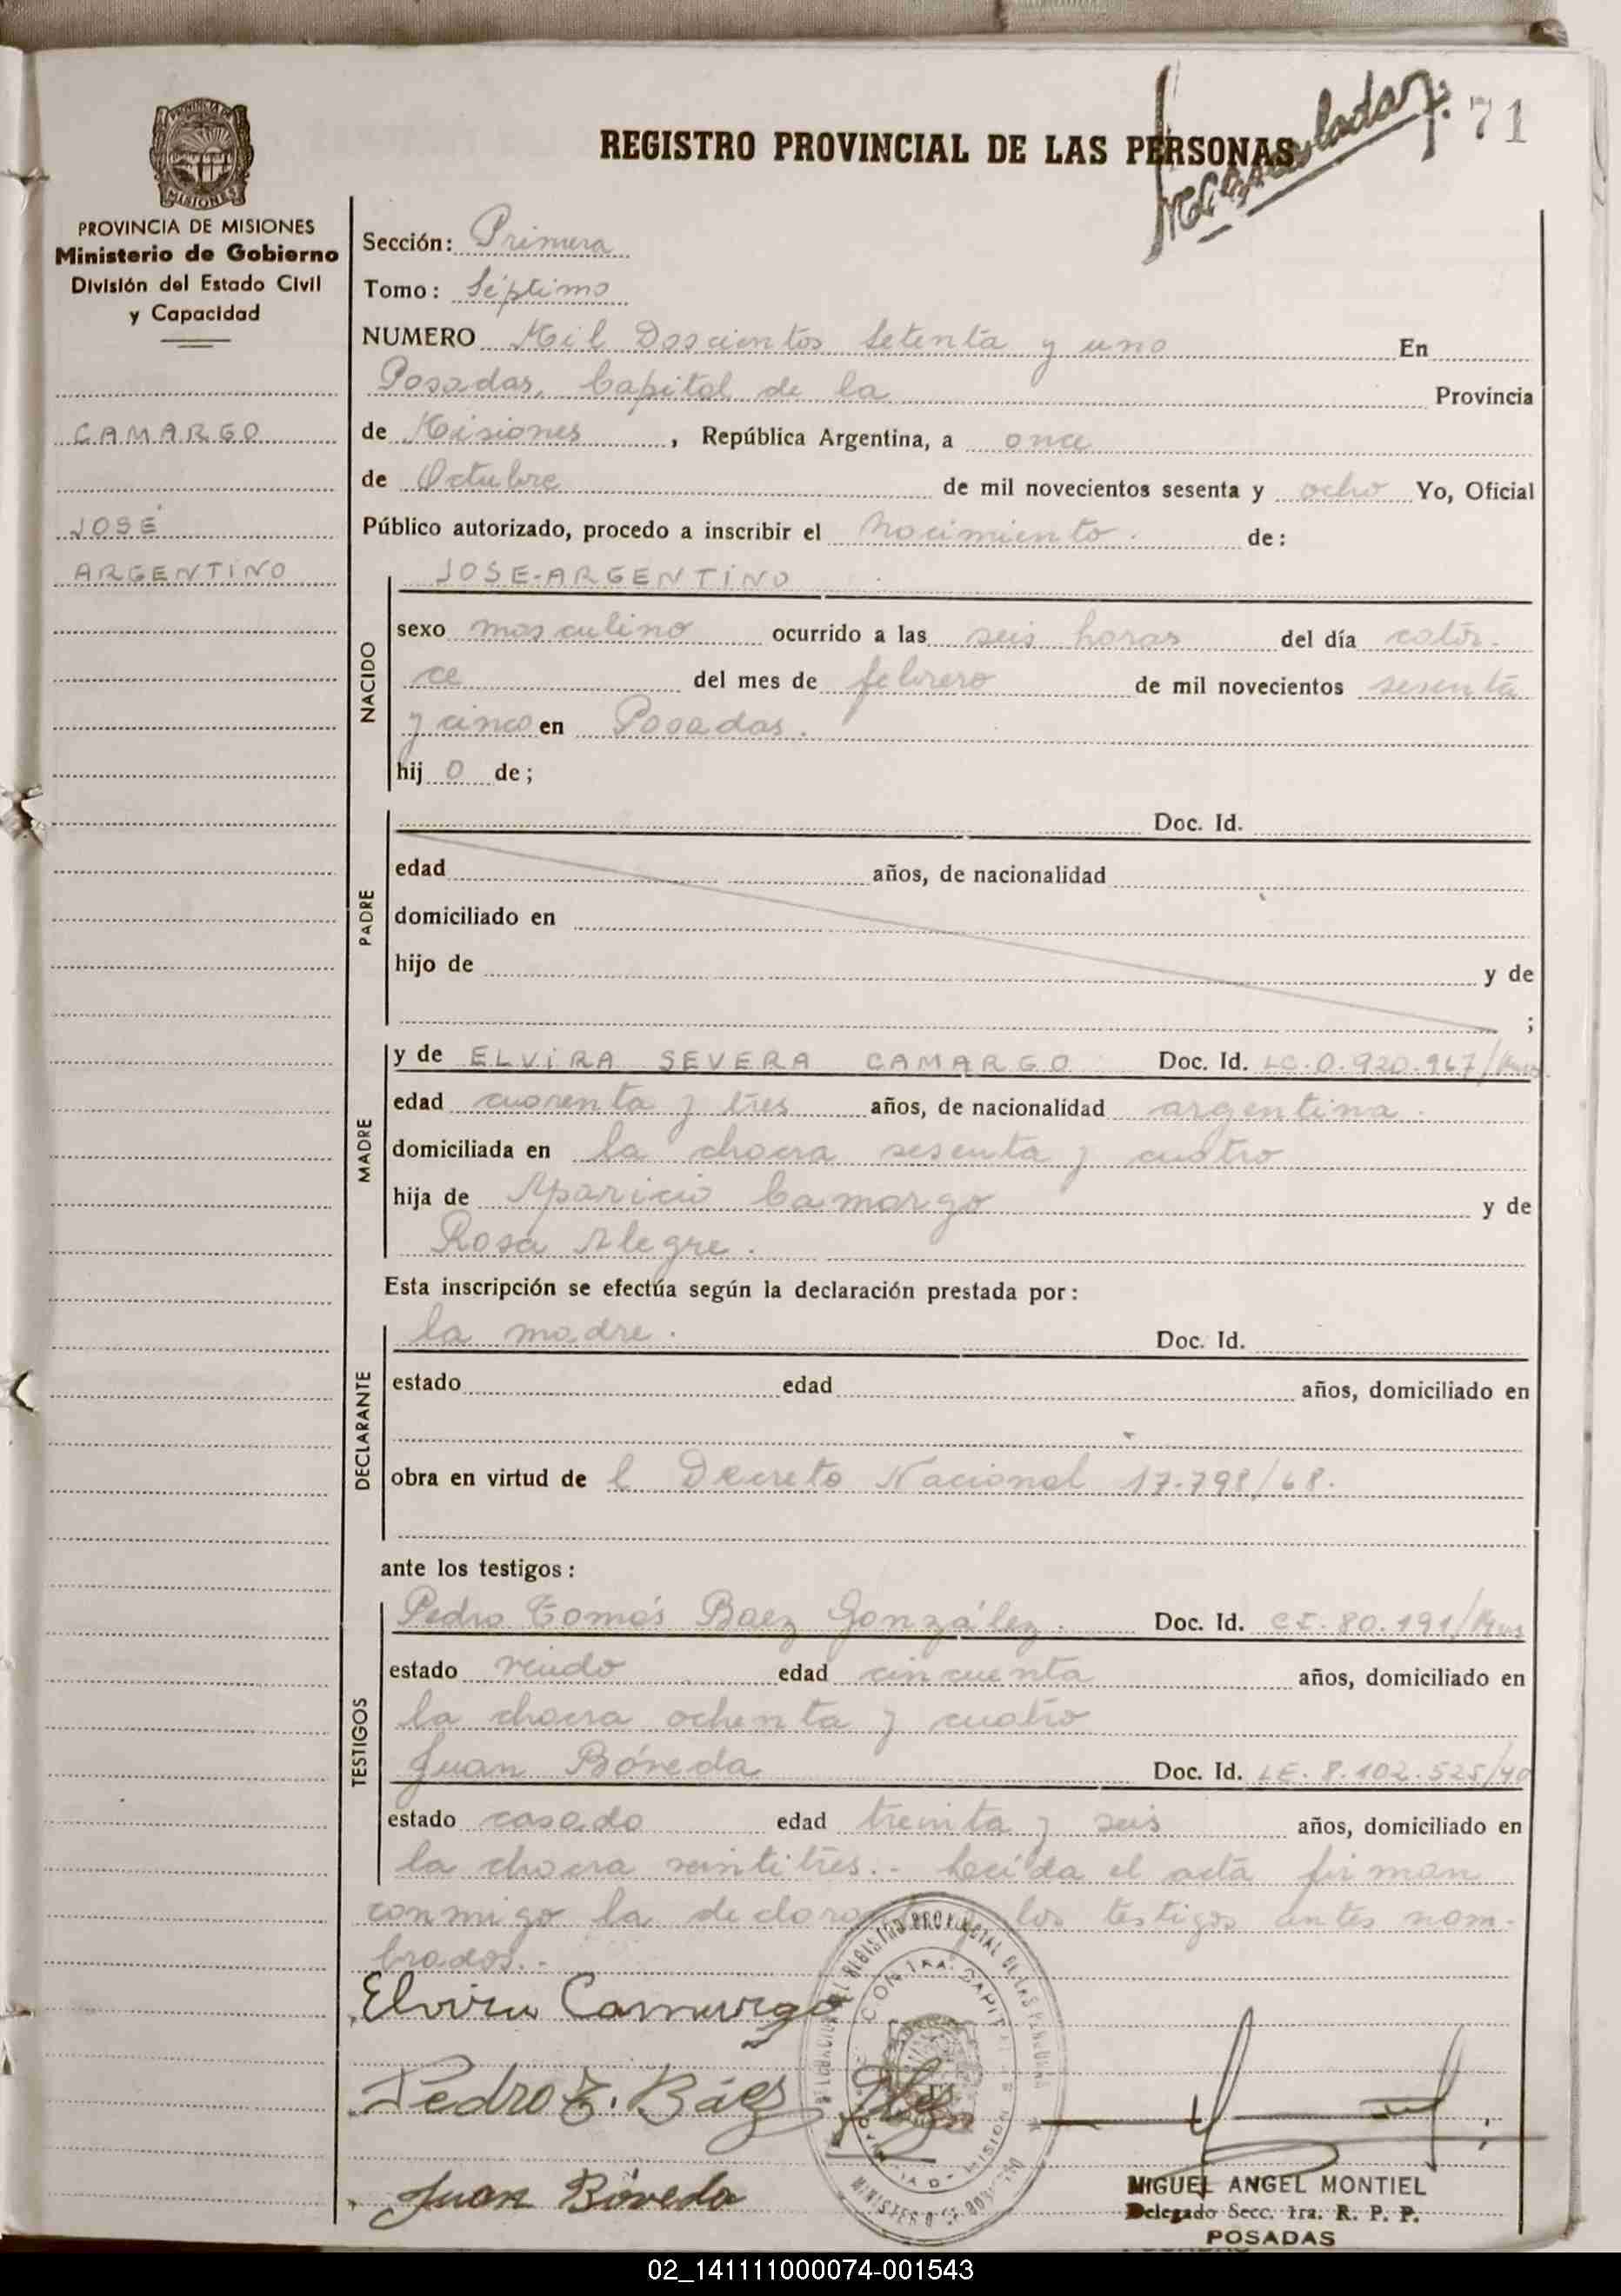 71
REGISTRO PROVINCIAL DE LAS PERSONAS
MISIONES
PROVINCIA DE MISIONES
Ministerio de Gobierno
División del Estado Civil
y Capacidad
CAMARGO
JOSÉ
ARGENTINO
Sección: Primera
Tomo: Séptimo
NUMERO Mil Doscientos Setenta y uno En
Posadas, Capital de la Provincia
de Misiones, República Argentina, a once
de Octubre de mil novecientos sesenta y ocho Yo, Oficial
Público autorizado, procedo a inscribir el nacimiento. de:
NACIDO
JOSE-ARGENTINO
sexo masculino ocurrido a las seis horas del día cator-
ce del mes de febrero de mil novecientos sesenta
y cinco en Posadas.
hij o de;
PADRE
Doc. Id.
edad años, de nacionalidad
domiciliado en
hijo de y de
;
MADRE
y de ELVIRA SEVERA CAMARGO Doc. Id. LC.0.920.967/Mnes
edad cuarenta y tres años, de nacionalidad argentina.
domiciliada en la chacra sesenta y cuatro
hija de Aparicio Camargo y de
Rosa Alegre.
Esta inscripción se efectúa según la declaración prestada por:
DECLARANTE
la madre. Doc. Id.
estado edad años, domiciliado en
obra en virtud de l Decreto Nacional 17.798/68.
ante los testigos:
TESTIGOS
Pedro Tomás Baez González. Doc. Id. CI.80.191/Mnes
estado viudo edad cincuenta años, domiciliado en
la chacra ochenta y cuatro
Juan Bóveda Doc. Id. LE.8.102.525/40
estado casado edad treinta y seis años, domiciliado en
la chacra veintitres.- Leída el acta firman
conmigo la los testigos antes nom-
brados.-
Elvira Camargo
Pedro T. Báez
Juan Bóveda
MIGUEL ANGEL MONTIEL
Delegado Secc. 1ra. R. P. P.
POSADAS
02_141111000074-001543